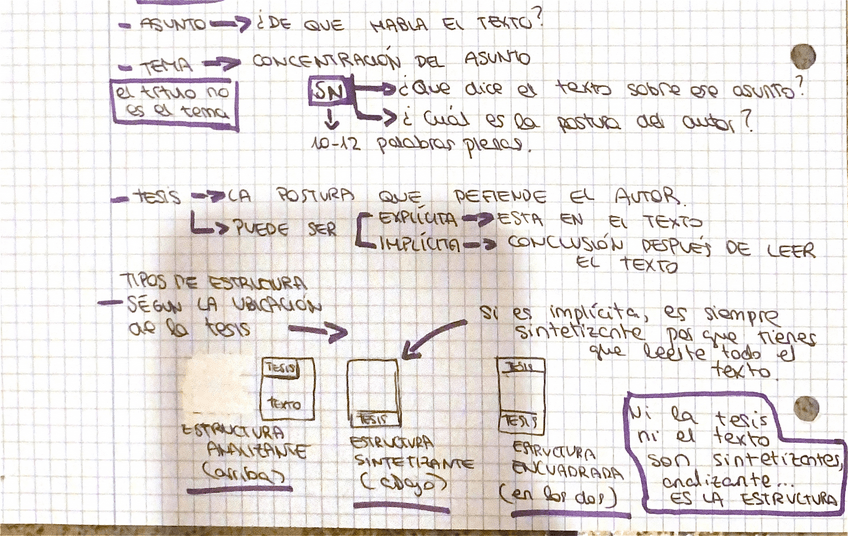 - ASUNTO → ¿DE QUE HABLA EL TEXTO?
- TEMA → CONCENTRACIÓN DEL ASUNTO
el título no
es el tema
SN → ¿Que dice el texto sobre ese asunto?
→ ¿Cuál es la postura del autor?
↓
10-12 palabras plenas.
- TESIS → LA POSTURA QUE DEFIENDE EL AUTOR.
↳ PUEDE SER
EXPLÍCITA → ESTA EN EL TEXTO
IMPLÍCITA → CONCLUSIÓN DESPUÉS DE LEER
EL TEXTO
TIPOS DE ESTRUCTURA
- SEGUN LA UBICACIÓN
de la tesis →
Si es implícita, es siempre
sintetizante porque tienes
que leerte todo el
texto.
TESIS
TEXTO
ESTRUCTURA
ANALIZANTE
(arriba)
TESIS
ESTRUCTURA
SINTETIZANTE
(abajo)
TESIS
TESIS
ESTRUCTURA
ENCUADRADA
(en los dos)
Ni la tesis
ni el texto
son sintetizantes,
analizante...
ES LA ESTRUCTURA